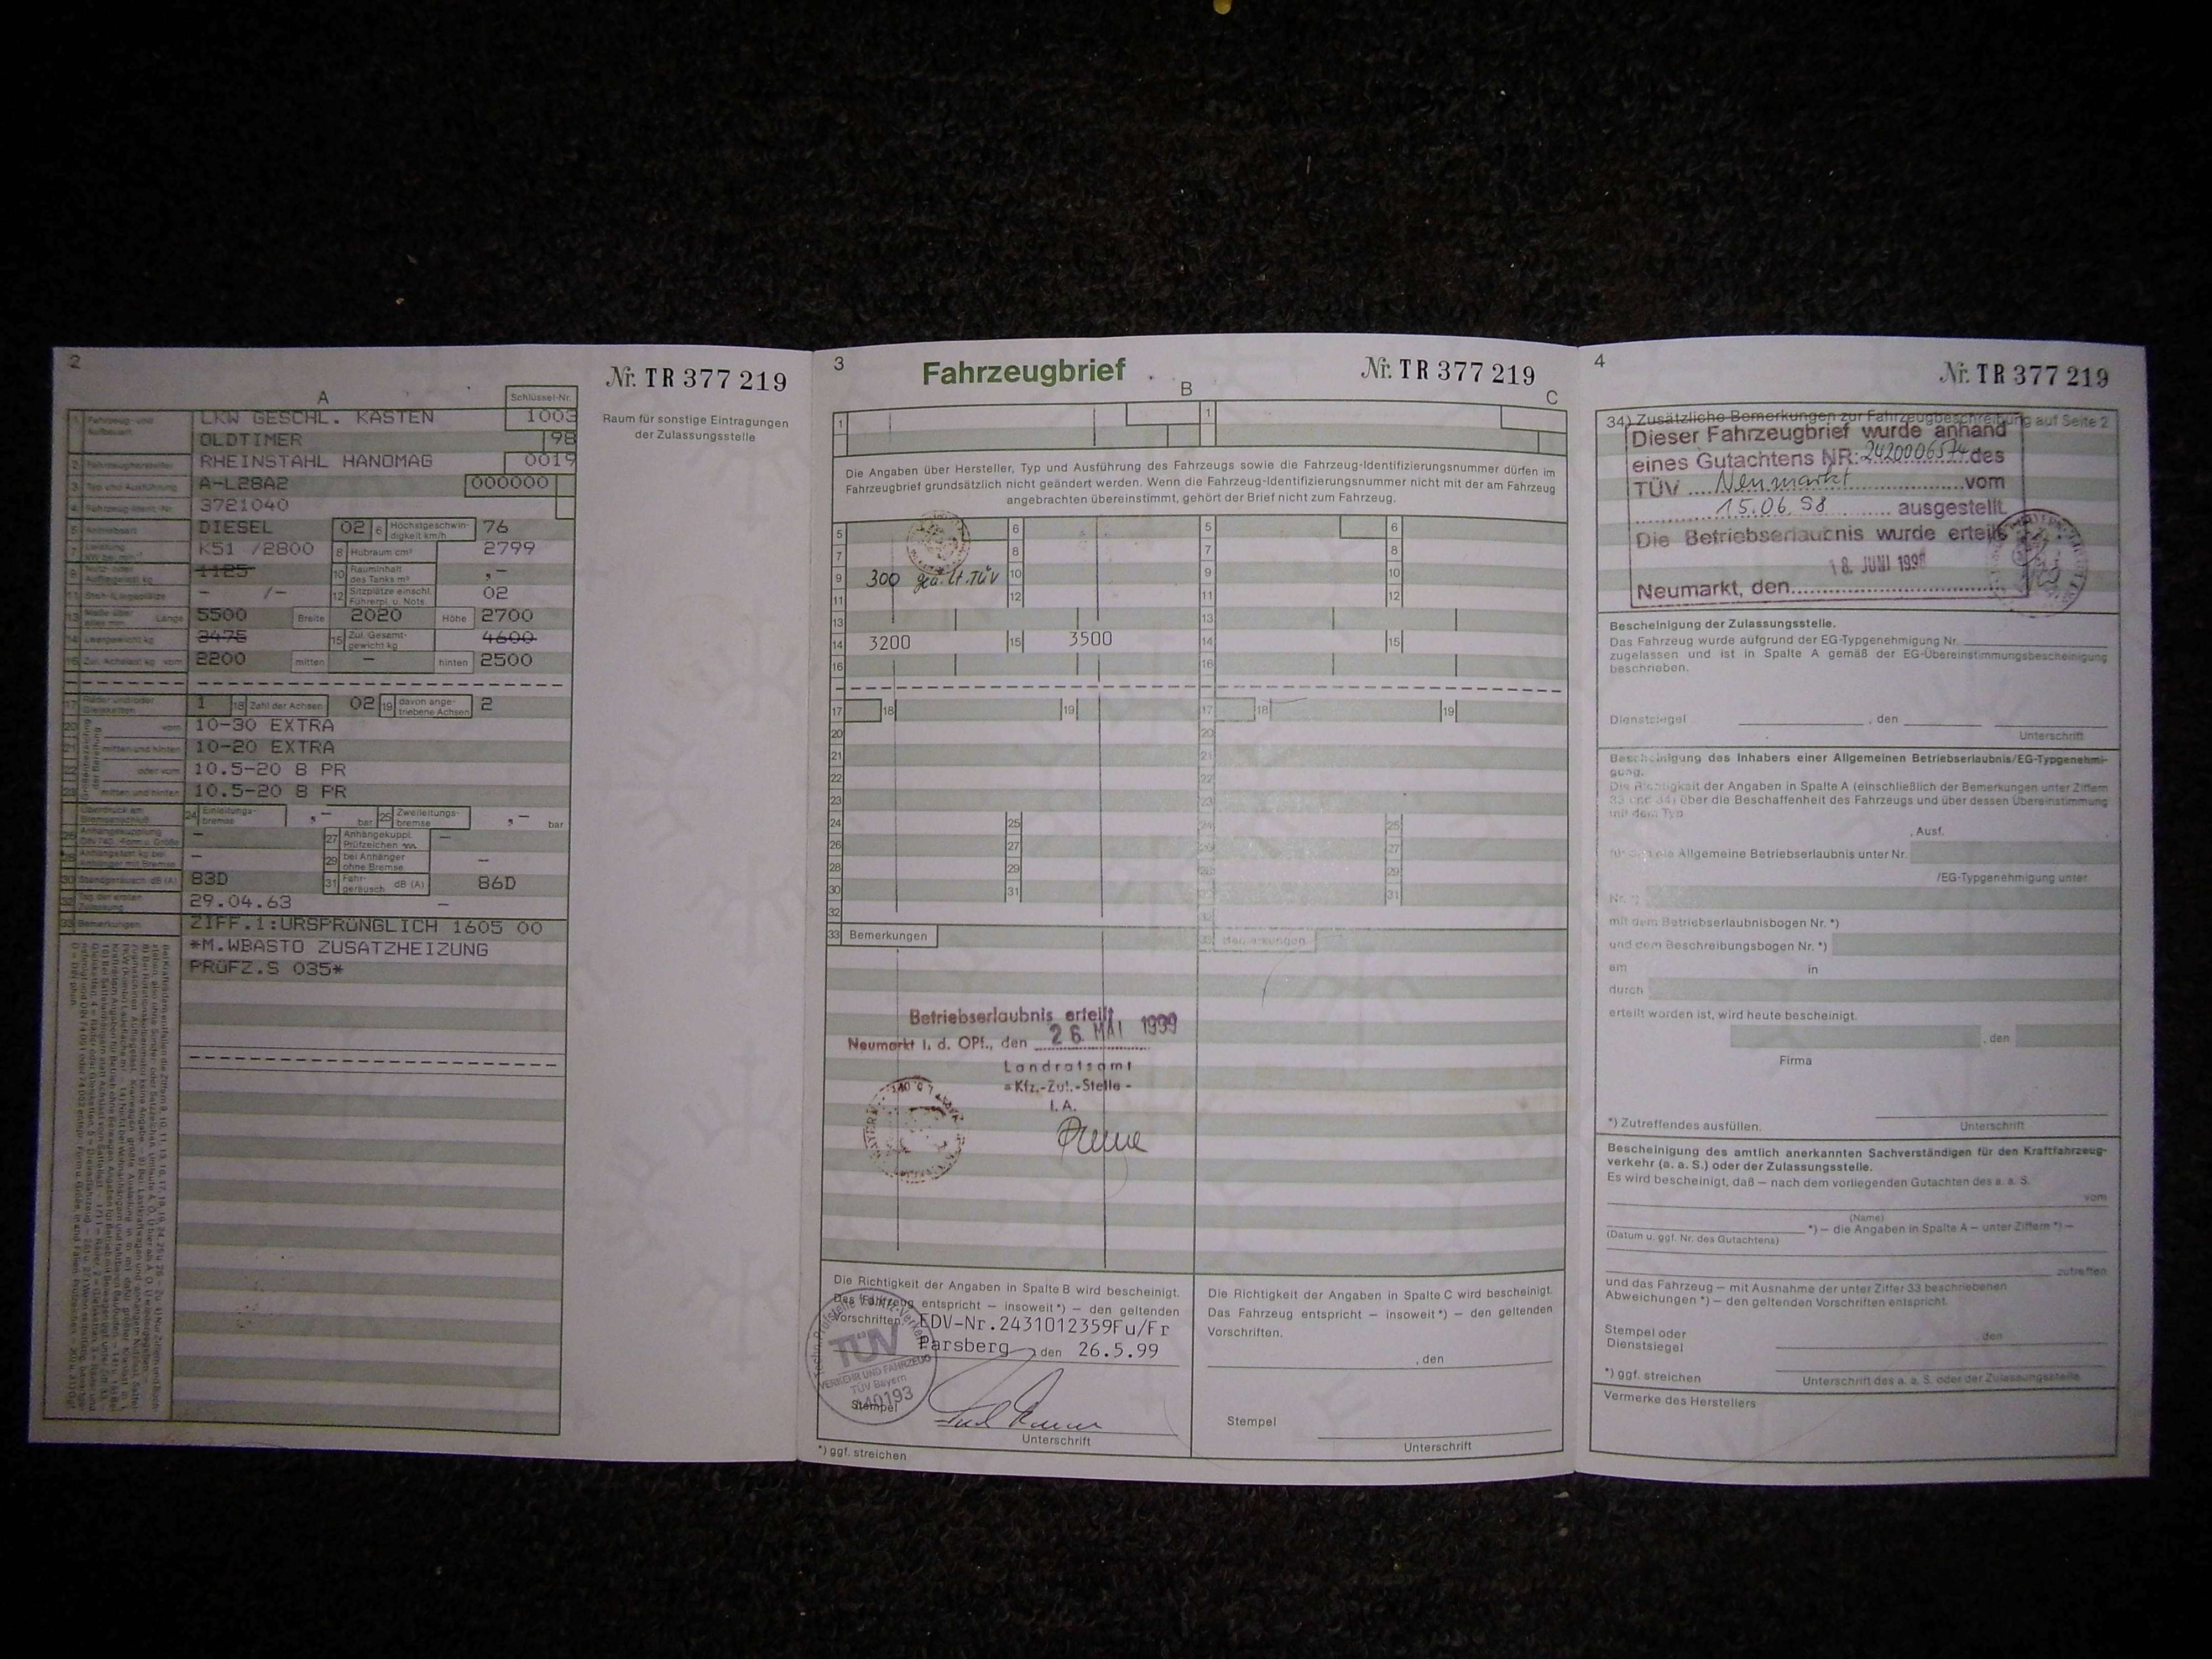 2
Nr. TR 377 219
A
Schlüssel-Nr.
Raum für sonstige Eintragungen
der Zulassungsstelle
1 Fahrzeug- und LKW GESCHL. KASTEN 1003
Aufbauart OLDTIMER 98
2 Fahrzeughersteller RHEINSTAHL HANOMAG 0019
3 Typ und Ausführung A-L28A2 000000
4 Fahrzeug-Ident.-Nr. 3721040
5 Antriebsart DIESEL 02 6 Höchstgeschwin-digkeit km/h 76
7 Leistung K51 /2800 8 Hubraum cm³ 2799
9 Nutz- oder Aufliegelast kg 1125 10 Rauminhalt des Tanks m³ ,-
11 Steh-/Liegeplätze - /- 12 Sitzplätze einschl. Führerpl. u. Nots. 02
13 Maße über alles mm Länge 5500 Breite 2020 Höhe 2700
14 Leergewicht kg 3475 15 Zul. Gesamt-gewicht kg 4600
16 Zul. Achslast kg vorn 2200 mitten - hinten 2500
17 Räder und/oder Gleisketten 1 18 Zahl der Achsen 02 19 davon ange-triebene Achsen 2
20 vorn 10-30 EXTRA
21 mitten und hinten 10-20 EXTRA
22 oder vorn 10.5-20 8 PR
23 mitten und hinten 10.5-20 8 PR
Überdruck am Bremsanschluß 24 Einleitungs-bremse ,- bar 25 Zweileitungs-bremse ,- bar
26 Anhängekupplung DIN 740 Form u. Größe - 27 Anhängekuppl. Prüfzeichen -
28 Anhängelast kg bei Anhänger mit Bremse - 29 bei Anhänger ohne Bremse -
30 Standgeräusch dB (A) 83D 31 Fahr-geräusch dB (A) 86D
32 Tag der ersten Zulassung 29.04.63 -
33 Bemerkungen ZIFF.1:URSPRÜNGLICH 1605 00
*M.WBASTO ZUSATZHEIZUNG
PRÜFZ.S 035*
3
Fahrzeugbrief
Nr. TR 377 219
B
C
1 1
Die Angaben über Hersteller, Typ und Ausführung des Fahrzeugs sowie die Fahrzeug-Identifizierungsnummer dürfen im
Fahrzeugbrief grundsätzlich nicht geändert werden. Wenn die Fahrzeug-Identifizierungsnummer nicht mit der am Fahrzeug
angebrachten übereinstimmt, gehört der Brief nicht zum Fahrzeug.
5 6 5 6
7 8 7 8
9 300 geä. lt. TÜV 10 9 10
11 12 11 12
13 13
14 3200 15 3500 14 15
16 16
17 18 19 17 18 19
20 20
21 21
22 22
23 23
24 25 24 25
26 27 26 27
28 29 28 29
30 31 30 31
32 32
33 Bemerkungen 33 Bemerkungen
Betriebserlaubnis erteilt
Neumarkt i. d. OPf., den 26. MAI 1999
Landratsamt
=Kfz.-Zul.-Stelle-
I.A.
Die Richtigkeit der Angaben in Spalte B wird bescheinigt.
Das Fahrzeug entspricht – insoweit*) – den geltenden
Vorschriften. EDV-Nr.2431012359Fu/Fr
Parsberg, den 26.5.99
TÜV
VERKEHR UND FAHRZEUG
TÜV Bayern
Stempel
Unterschrift
*) ggf. streichen
Die Richtigkeit der Angaben in Spalte C wird bescheinigt.
Das Fahrzeug entspricht – insoweit*) – den geltenden
Vorschriften.
, den
Stempel
Unterschrift
4
Nr. TR 377 219
34) Zusätzliche Bemerkungen zur Fahrzeugbeschreibung auf Seite 2
Dieser Fahrzeugbrief wurde anhand
eines Gutachtens NR: 2420006574 des
TÜV Neumarkt vom
15.06.98 ausgestellt
Die Betriebserlaubnis wurde erteilt
18. JUNI 1998
Neumarkt, den
Bescheinigung der Zulassungsstelle.
Das Fahrzeug wurde aufgrund der EG-Typgenehmigung Nr.
zugelassen und ist in Spalte A gemäß der EG-Übereinstimmungsbescheinigung
beschrieben.
Dienstsiegel , den
Unterschrift
Bescheinigung des Inhabers einer Allgemeinen Betriebserlaubnis/EG-Typgenehmi-
gung.
Die Richtigkeit der Angaben in Spalte A (einschließlich der Bemerkungen unter Ziffern
33 und 34) über die Beschaffenheit des Fahrzeugs und über dessen Übereinstimmung
mit dem Typ
, Ausf.
für den die Allgemeine Betriebserlaubnis unter Nr.
/EG-Typgenehmigung unter
Nr. *)
mit dem Betriebserlaubnisbogen Nr. *)
und dem Beschreibungsbogen Nr. *)
am in
durch
erteilt worden ist, wird heute bescheinigt.
, den
Firma
*) Zutreffendes ausfüllen.
Unterschrift
Bescheinigung des amtlich anerkannten Sachverständigen für den Kraftfahrzeug-
verkehr (a. a. S.) oder der Zulassungsstelle.
Es wird bescheinigt, daß – nach dem vorliegenden Gutachten des a. a. S.
vom
(Name)
*) – die Angaben in Spalte A – unter Ziffern *) –
(Datum u. ggf. Nr. des Gutachtens)
zutreffen
und das Fahrzeug – mit Ausnahme der unter Ziffer 33 beschriebenen
Abweichungen *) – den geltenden Vorschriften entspricht.
Stempel oder
Dienstsiegel
, den
*) ggf. streichen
Unterschrift des a. a. S. oder der Zulassungsstelle
Vermerke des Herstellers